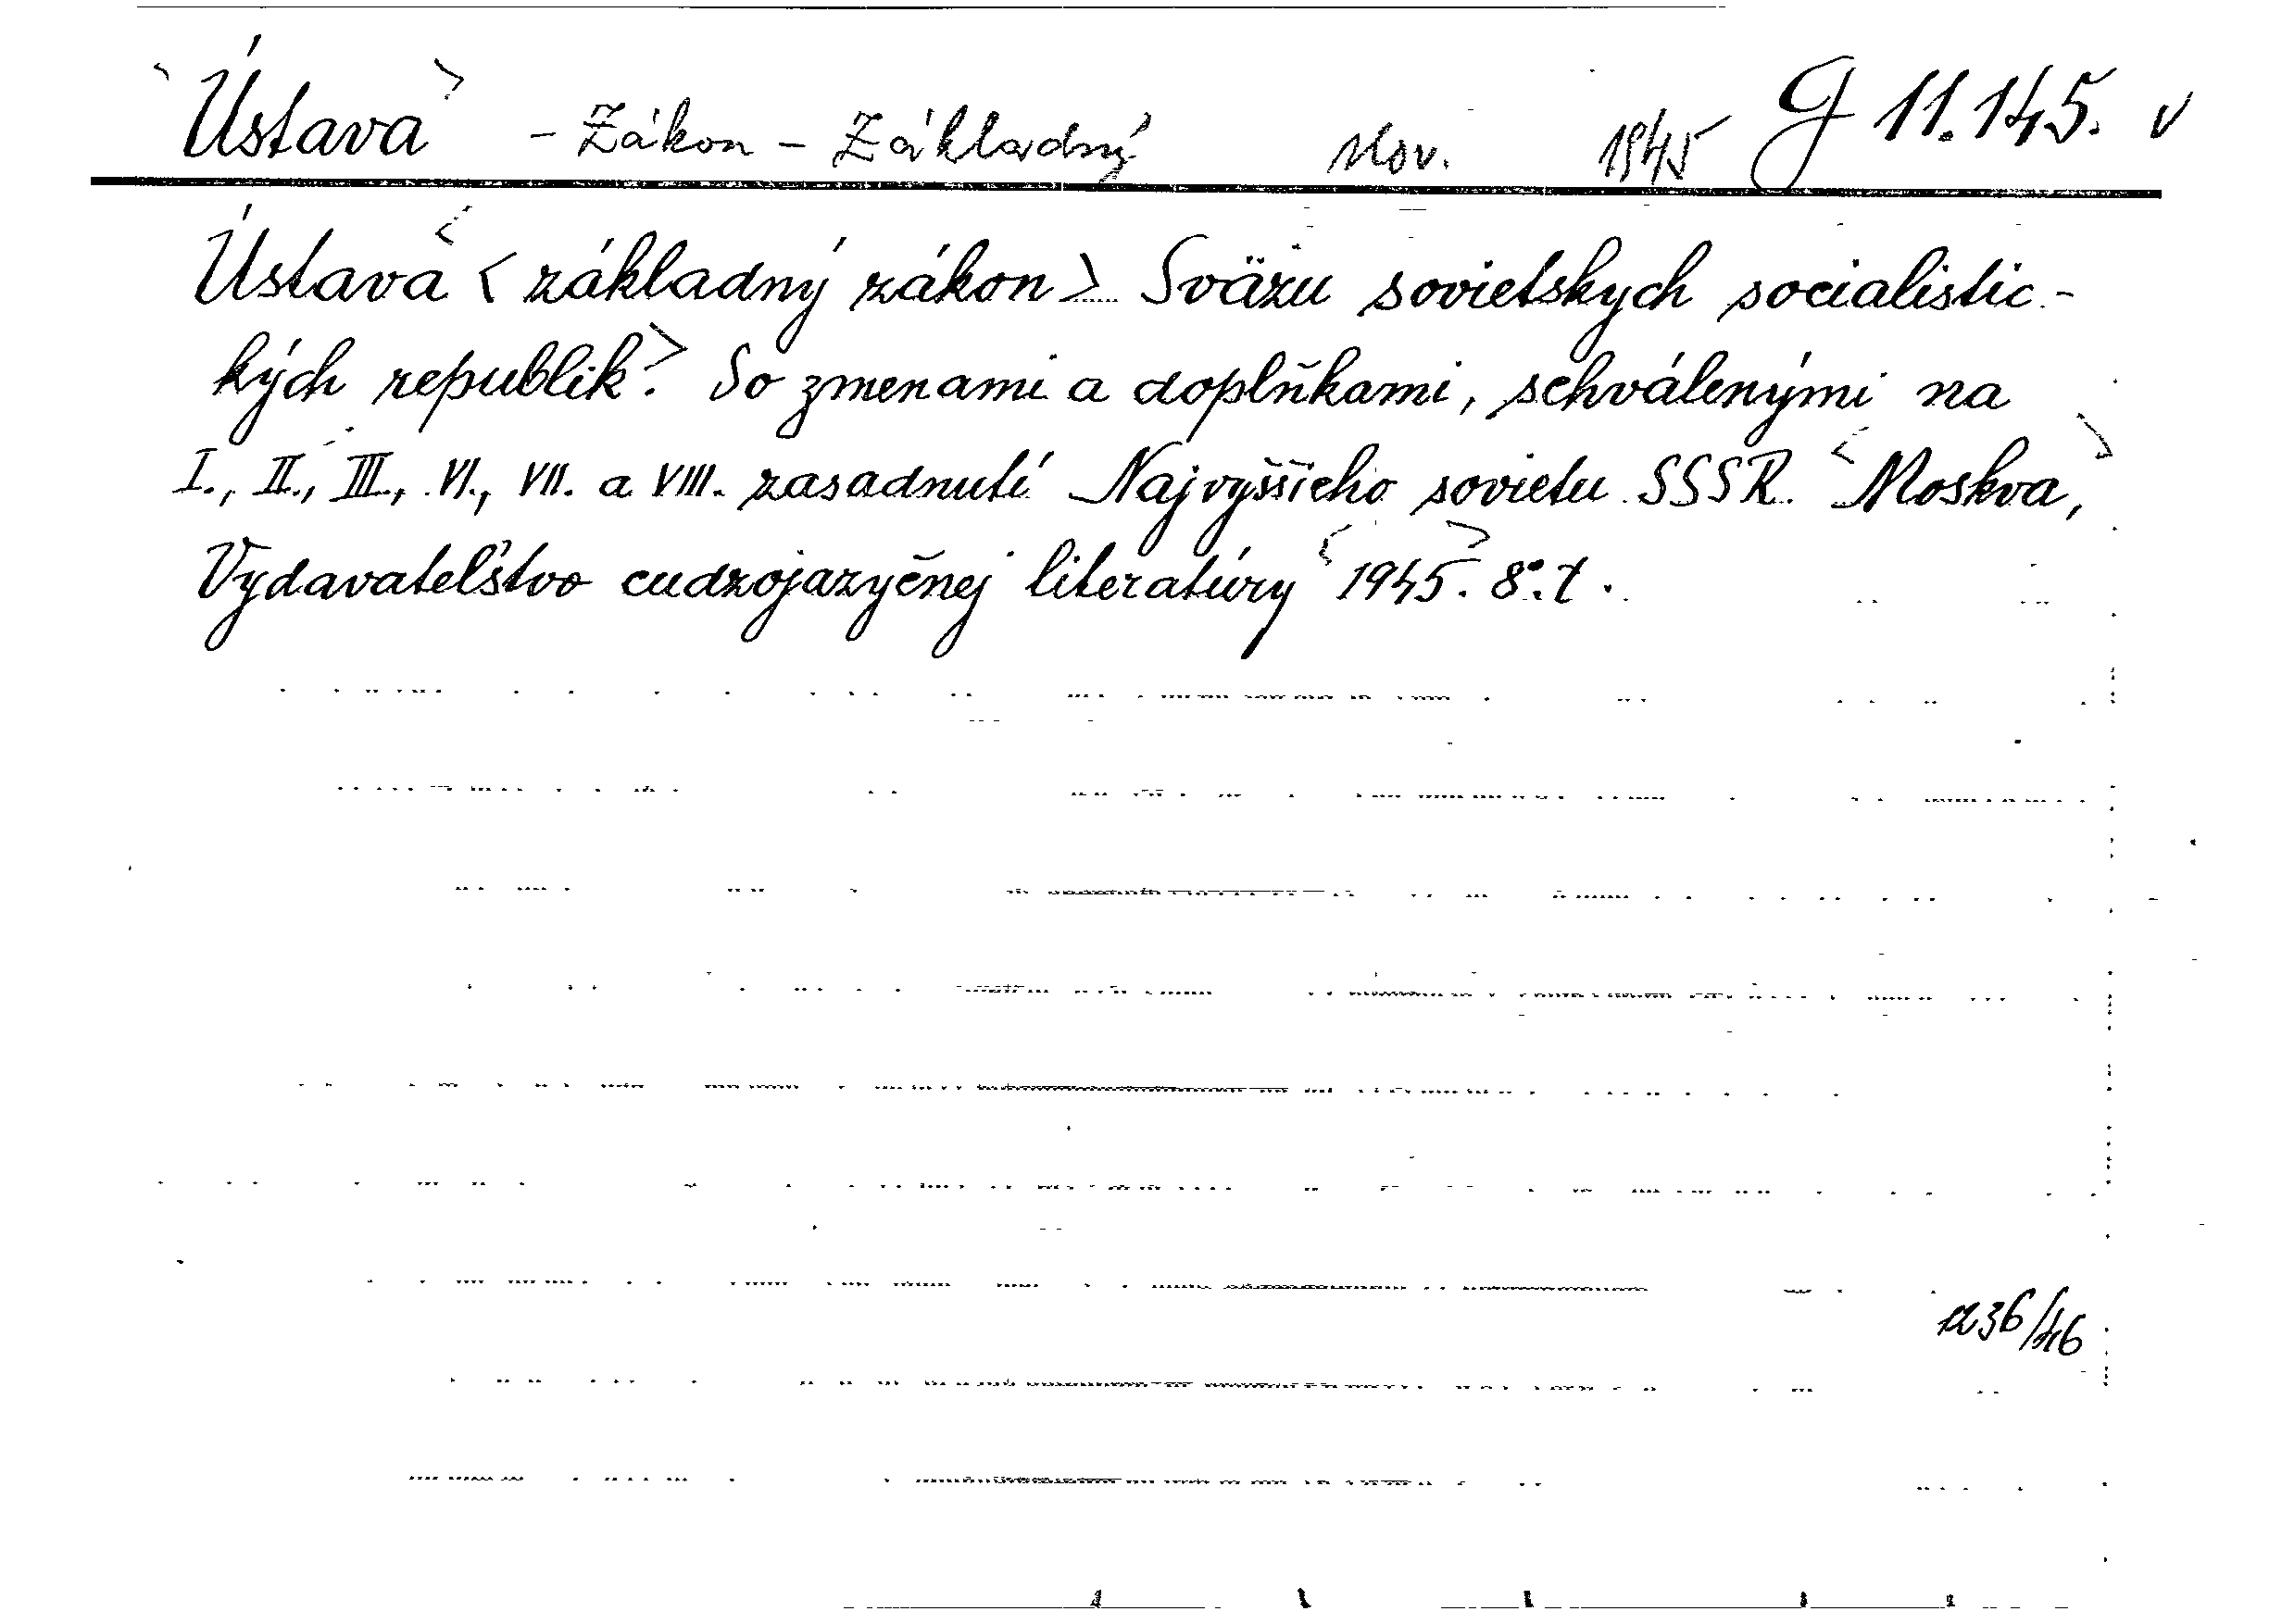 Ústava - Zákon - Základný slov. 1945 G 11.145. v
Ústava < základný zákon > Sväzu sovietskych socialistic-
kých republik. So zmenami a doplňkami, schválenými na
I., II., III., VI., VII. a VIII. zasadnutí Najvyššieho sovietu SSSR. Moskva,
Vydavateľstvo cudzojazyčnej literatúry 1945. 8°. t.
36/46